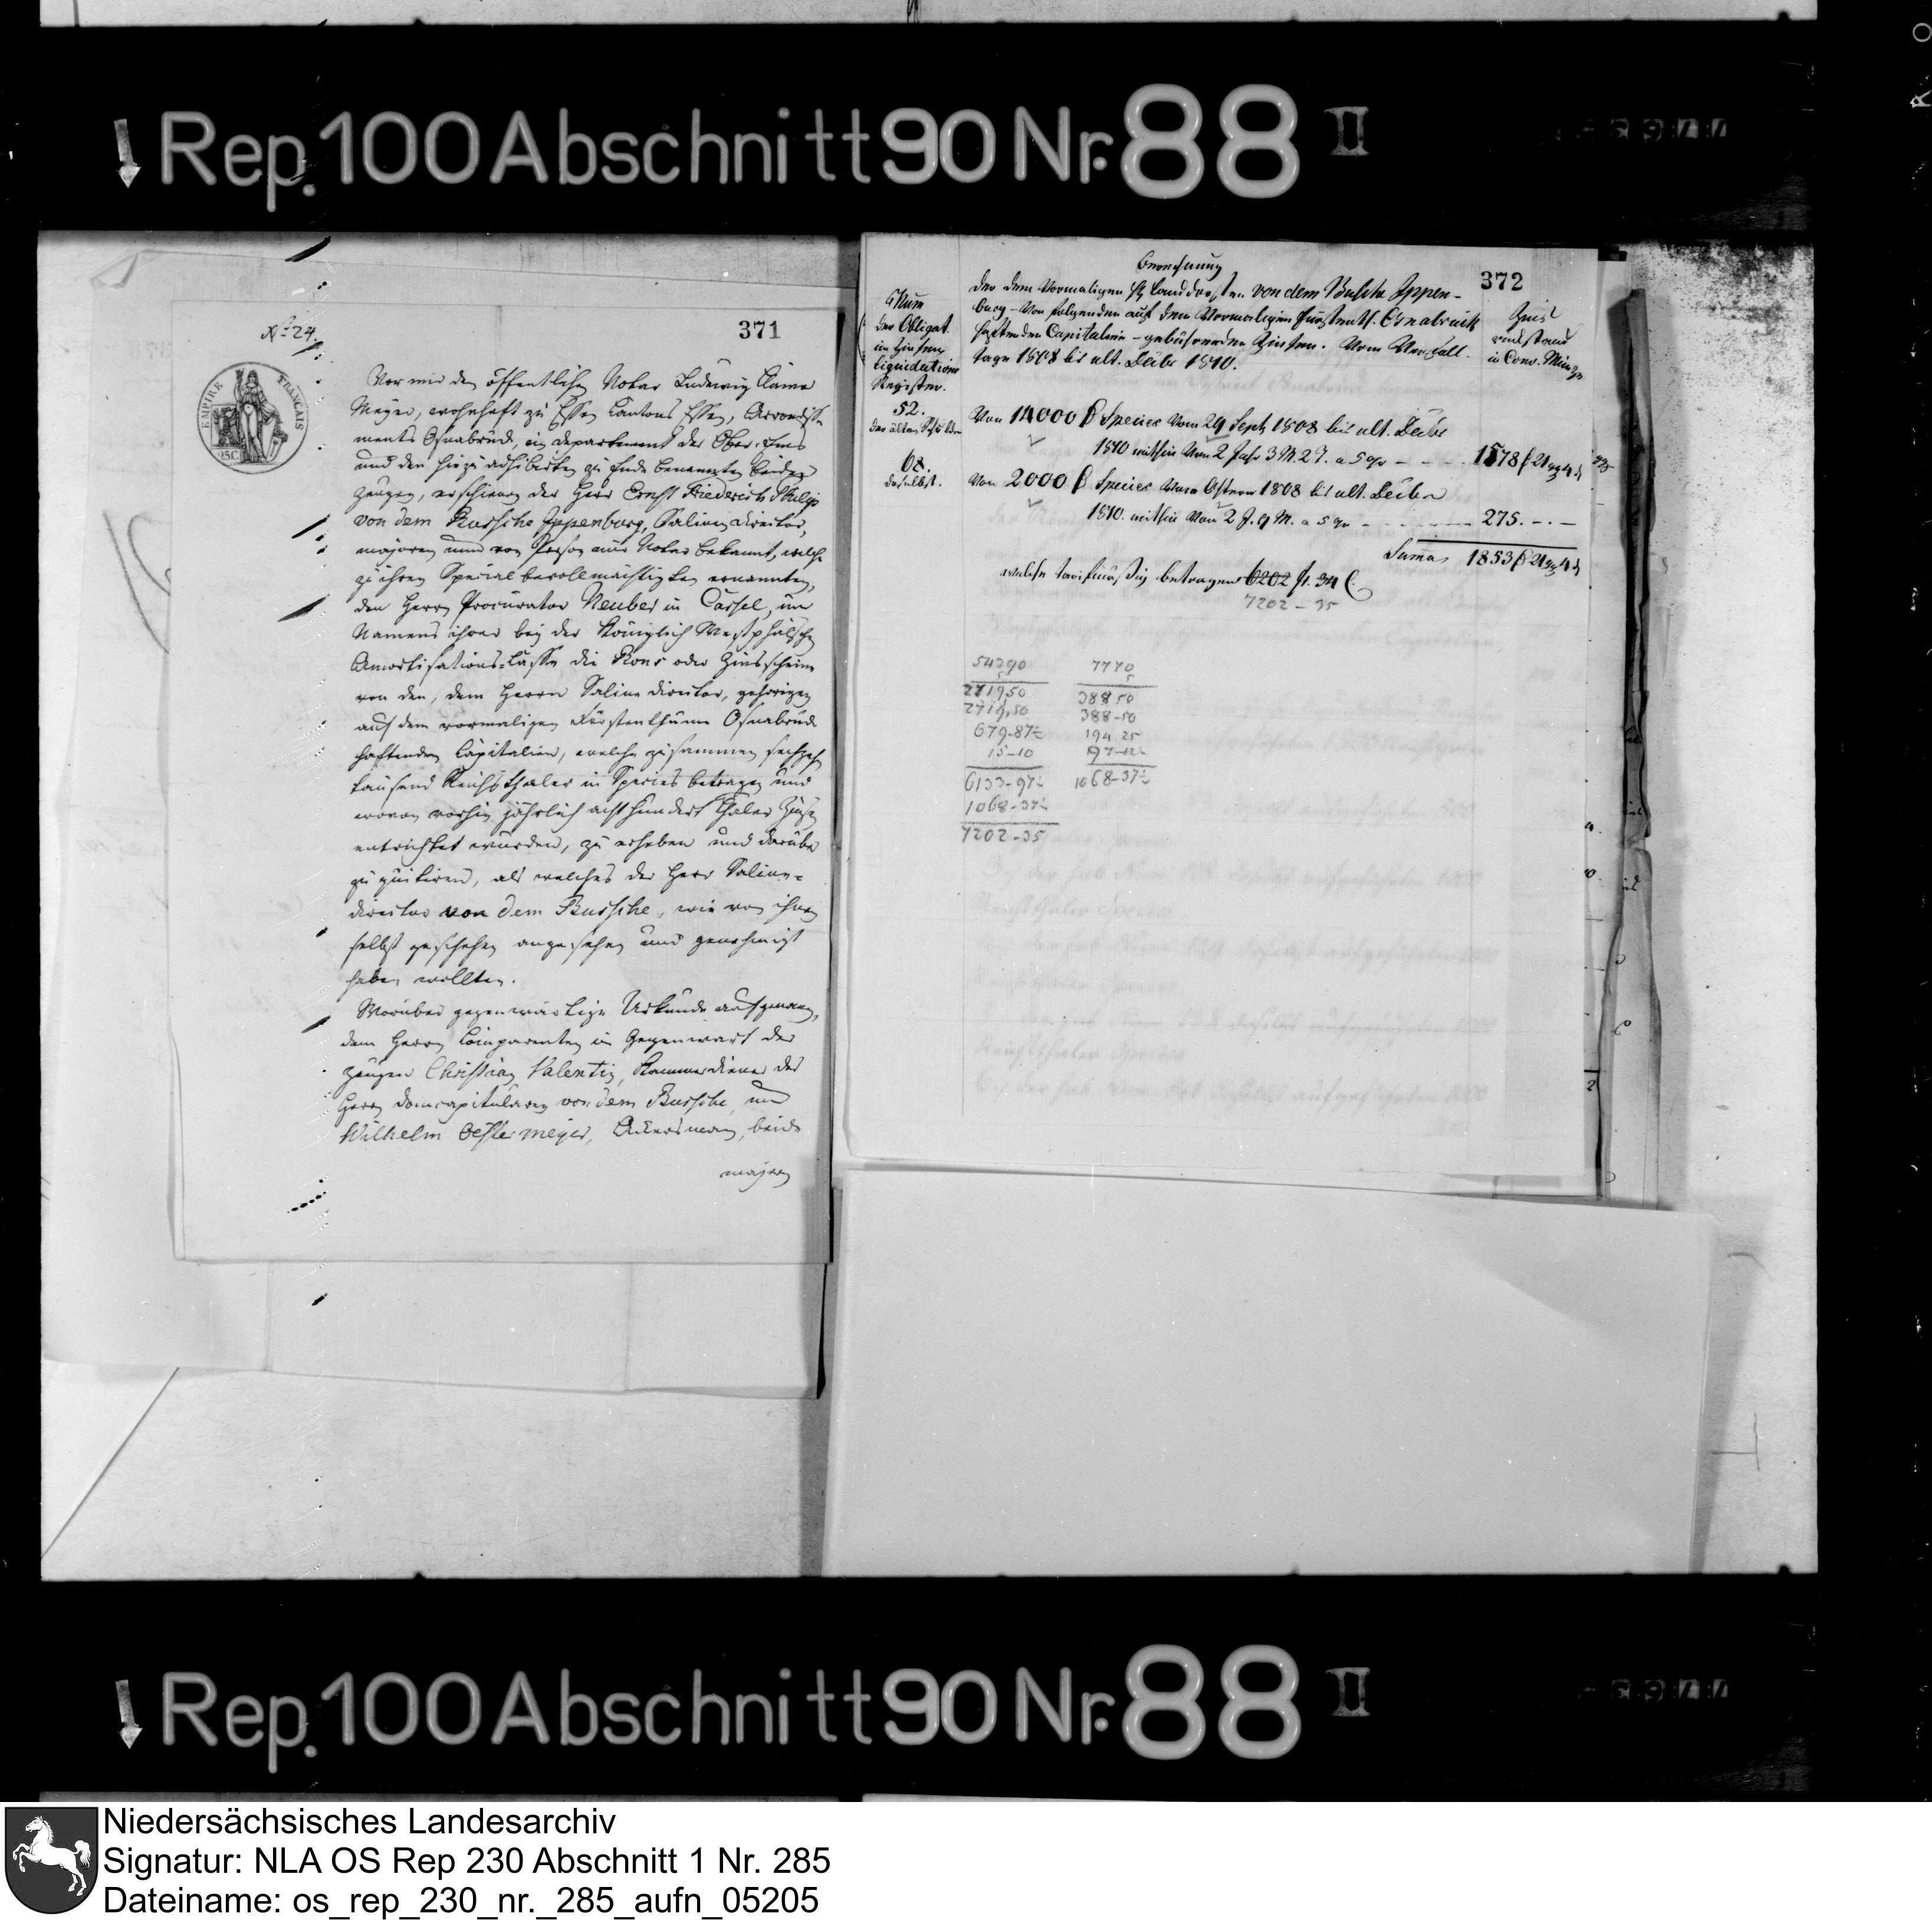 Rep. 100 Abschnitt 90 Nr. 88 II
371
No 24.
EMPIRE FRANÇAIS
25C
Vor mir den öffentlichen Notar Ludewig Clamor
Meyer, wohnhaft zu Essen Cantons Essen, Arrondisse-
ments Osnabrück, im Departement der Ober-Ems
und den hiezu adhibirten zu Ende benannten beiden
Zeugen, erschienen der Herr Ernst Friederich Philip
von dem Bussche Ippenburg, Salinendirector,
majoren und von Person mir Notar bekannt, welche
zu ihren Specialbevollmächtigten ernannten,
den Herrn Procurator Neuber in Cassel, um
Namens ihrer bey der Königlich Westphälischen
Amortisations-Casse die Bons oder Zinsscheine
von den, dem Herrn Salinendirector, gehörigen
auf dem vormaligen Fürstenthume Osnabrück
haftenden Capitalien, welche zusammen sechzehn
tausend Reichsthaler in Species betragen und
wovon vorhin jährlich achthundert Thaler Zinsen
entrichtet wurden, zu erheben und darüber
zu quitiren, als welches der Herr Salinen-
director von dem Bussche, wie von ihnen
selbst geschehen angesehen und genehmigt
haben wollten.
Worüber gegenwärtige Urkunde aufgenommen,
dem Herrn Comparenten in Gegenwart der
Zeugen Christian Valentin, Kammerdiener des
Herrn Domcapitularen von dem Bussche, und
Wilhelm Oestermeyer, Ackersmann, beide
majoren
372
Berechnung
der dem Vormaligen Landdrosten von dem Bussche Ippen-
burg - Von folgenden auf dem Vormaligen Fürstenth. Osnabrück
haftenden Capitalien - gebührenden Zinsen. Vom Verfall-
tage 1808 bis ult. Decbr 1810.
Num
der Obligat.
im Zinsen
Liquidations
Register.
Zins
rückstand
in Conv. Münze
52.
Von 14000 Species Vom 29 Sept 1808 bis ult. Decbr
1810 mithin Von 2 Jahr 3 M. 2 T. a 5 - - - 1578 21 4
68.
daselbst.
Von 2000 Species Vom Ostern 1808 bis ult. Decbr
1810. mithin Von 2 J. 9 M. a 5 - - - 275. - . -
Suma 1853 21 4
welche tarifmäßig betragen 6202 fr. 34 C
7202 - 35
54390 7770
5 5
2719,50 388 50
2719,50 388-50
679-87½ 194 25
15-10 97-12½
6133-97½ 1068-37½
1068-37½
7202-35
Rep. 100 Abschnitt 90 Nr. 88 II
Niedersächsisches Landesarchiv
Signatur: NLA OS Rep 230 Abschnitt 1 Nr. 285
Dateiname: os_rep_230_nr._285_aufn_05205